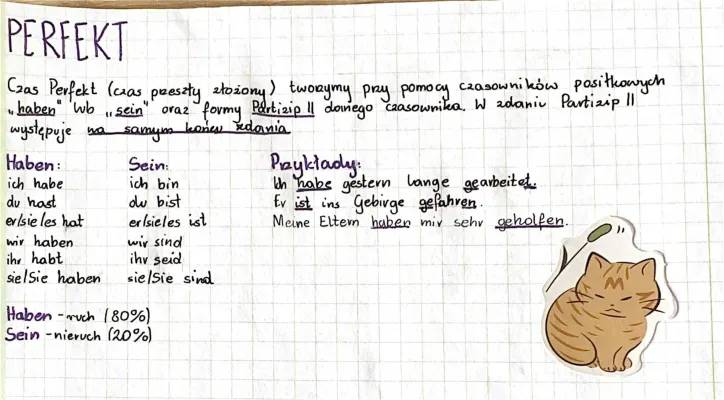 PERFEKT
Czas Perfekt (czas przeszły złożony) tworzymy przy pomocy czasowników posiłkowych
„haben" lub „sein" oraz formy Partizip II danego czasownika. W zdaniu Partizip II
występuje na samym końcu zdania
Haben: Sein: Przykłady:
ich habe ich bin Ich habe gestern lange gearbeitet.
du hast du bist Er ist ins Gebirge gefahren.
er/sie/es hat er/sie/es ist Meine Eltern haben mir sehr geholfen.
wir haben wir sind
ihr habt ihr seid
sie/Sie haben sie/Sie sind
Haben - ruch (80%)
Sein - nieruch (20%)